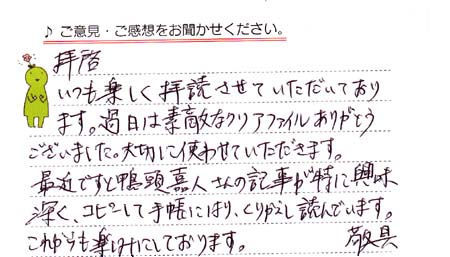 ♪ ご意見・ご感想をお聞かせください。
拝啓
いつも楽しく拝読させていただいており
ます。過日は素敵なクリアファイルありがとう
ございました。大切に使わせていただきます。
最近ですと鴨頭嘉人さんの記事が特に興味
深く、コピーして手帳にはり、くりかえし読んでいます。
これからも楽しみにしております。 敬具